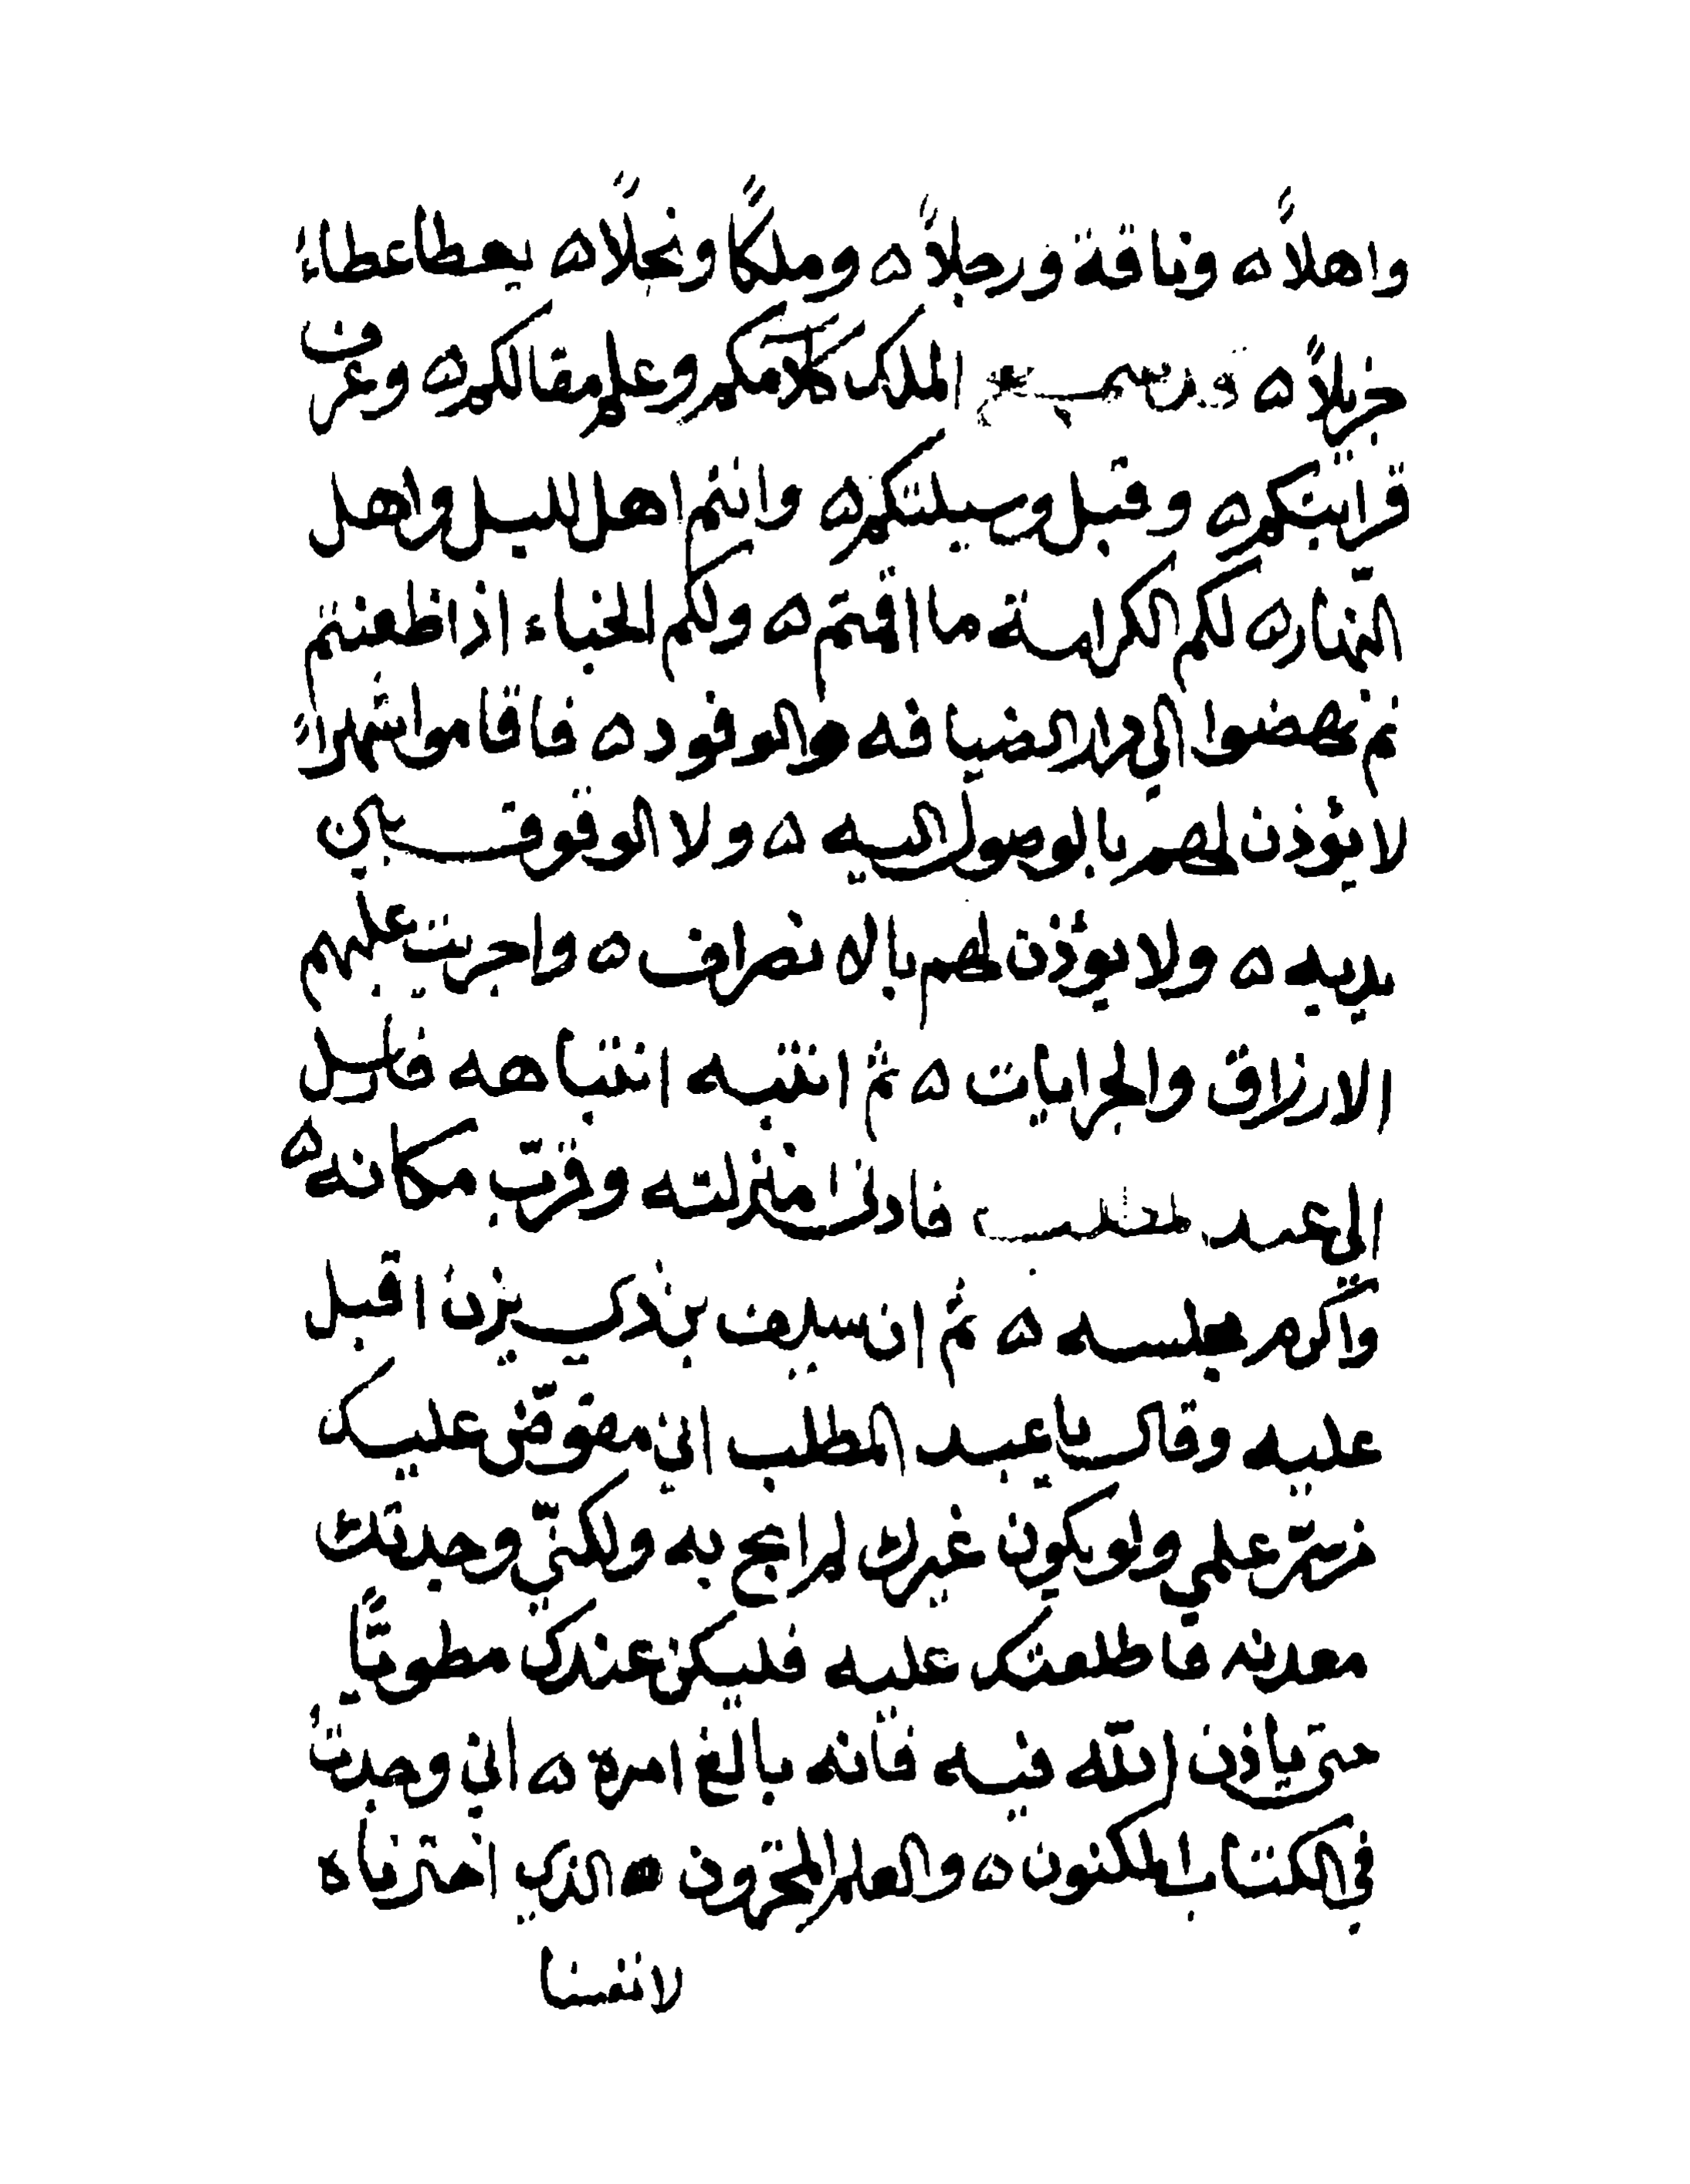 واهلاً ه وناقة ورحلاً ه وملكًا ونخلًا ه يعطا عطاءً
جزيلاً ه وقد سمع الملك كلامكم وعلم مقالكم ه وعرف
قرابتكم ه وقبل وسيلتكم ه وانتم اهل لليل واهل
النّهار ه لكم الكرامة ما اقمتم ه ولكم الحباء اذا ظعنتم
ثم نهضوا الى دار الضيافه والوفود ه فاقاموا شهراً
لا يؤذن لهم بالوصول اليه ه ولا الوقوف بين
يديه ه ولا يؤذن لهم بالانصراف ه واجريت عليهم
الارزاق والجرايات ه ثم انتبه انتباهه فارسل
الى عبد المطلب فادنى منزلته وقرّب مكانه ه
واكرم مجلسه ه ثم ان سيف بن ذي يزن اقبل
عليه وقال يا عبد المطلب اني مفوّض عليك
من سرّ علمي ولو يكون غيرك لم ابح به ولكنّي وجدتك
معدنه فاطلعتك عليه فليكن عندك مطويًّا
حتى ياذن الله فيه فانه بالغ امره ه اني وجدتُ
في الكتاب المكنون ه والعلم المخزون ه الذي اخترناه
لانفسنا